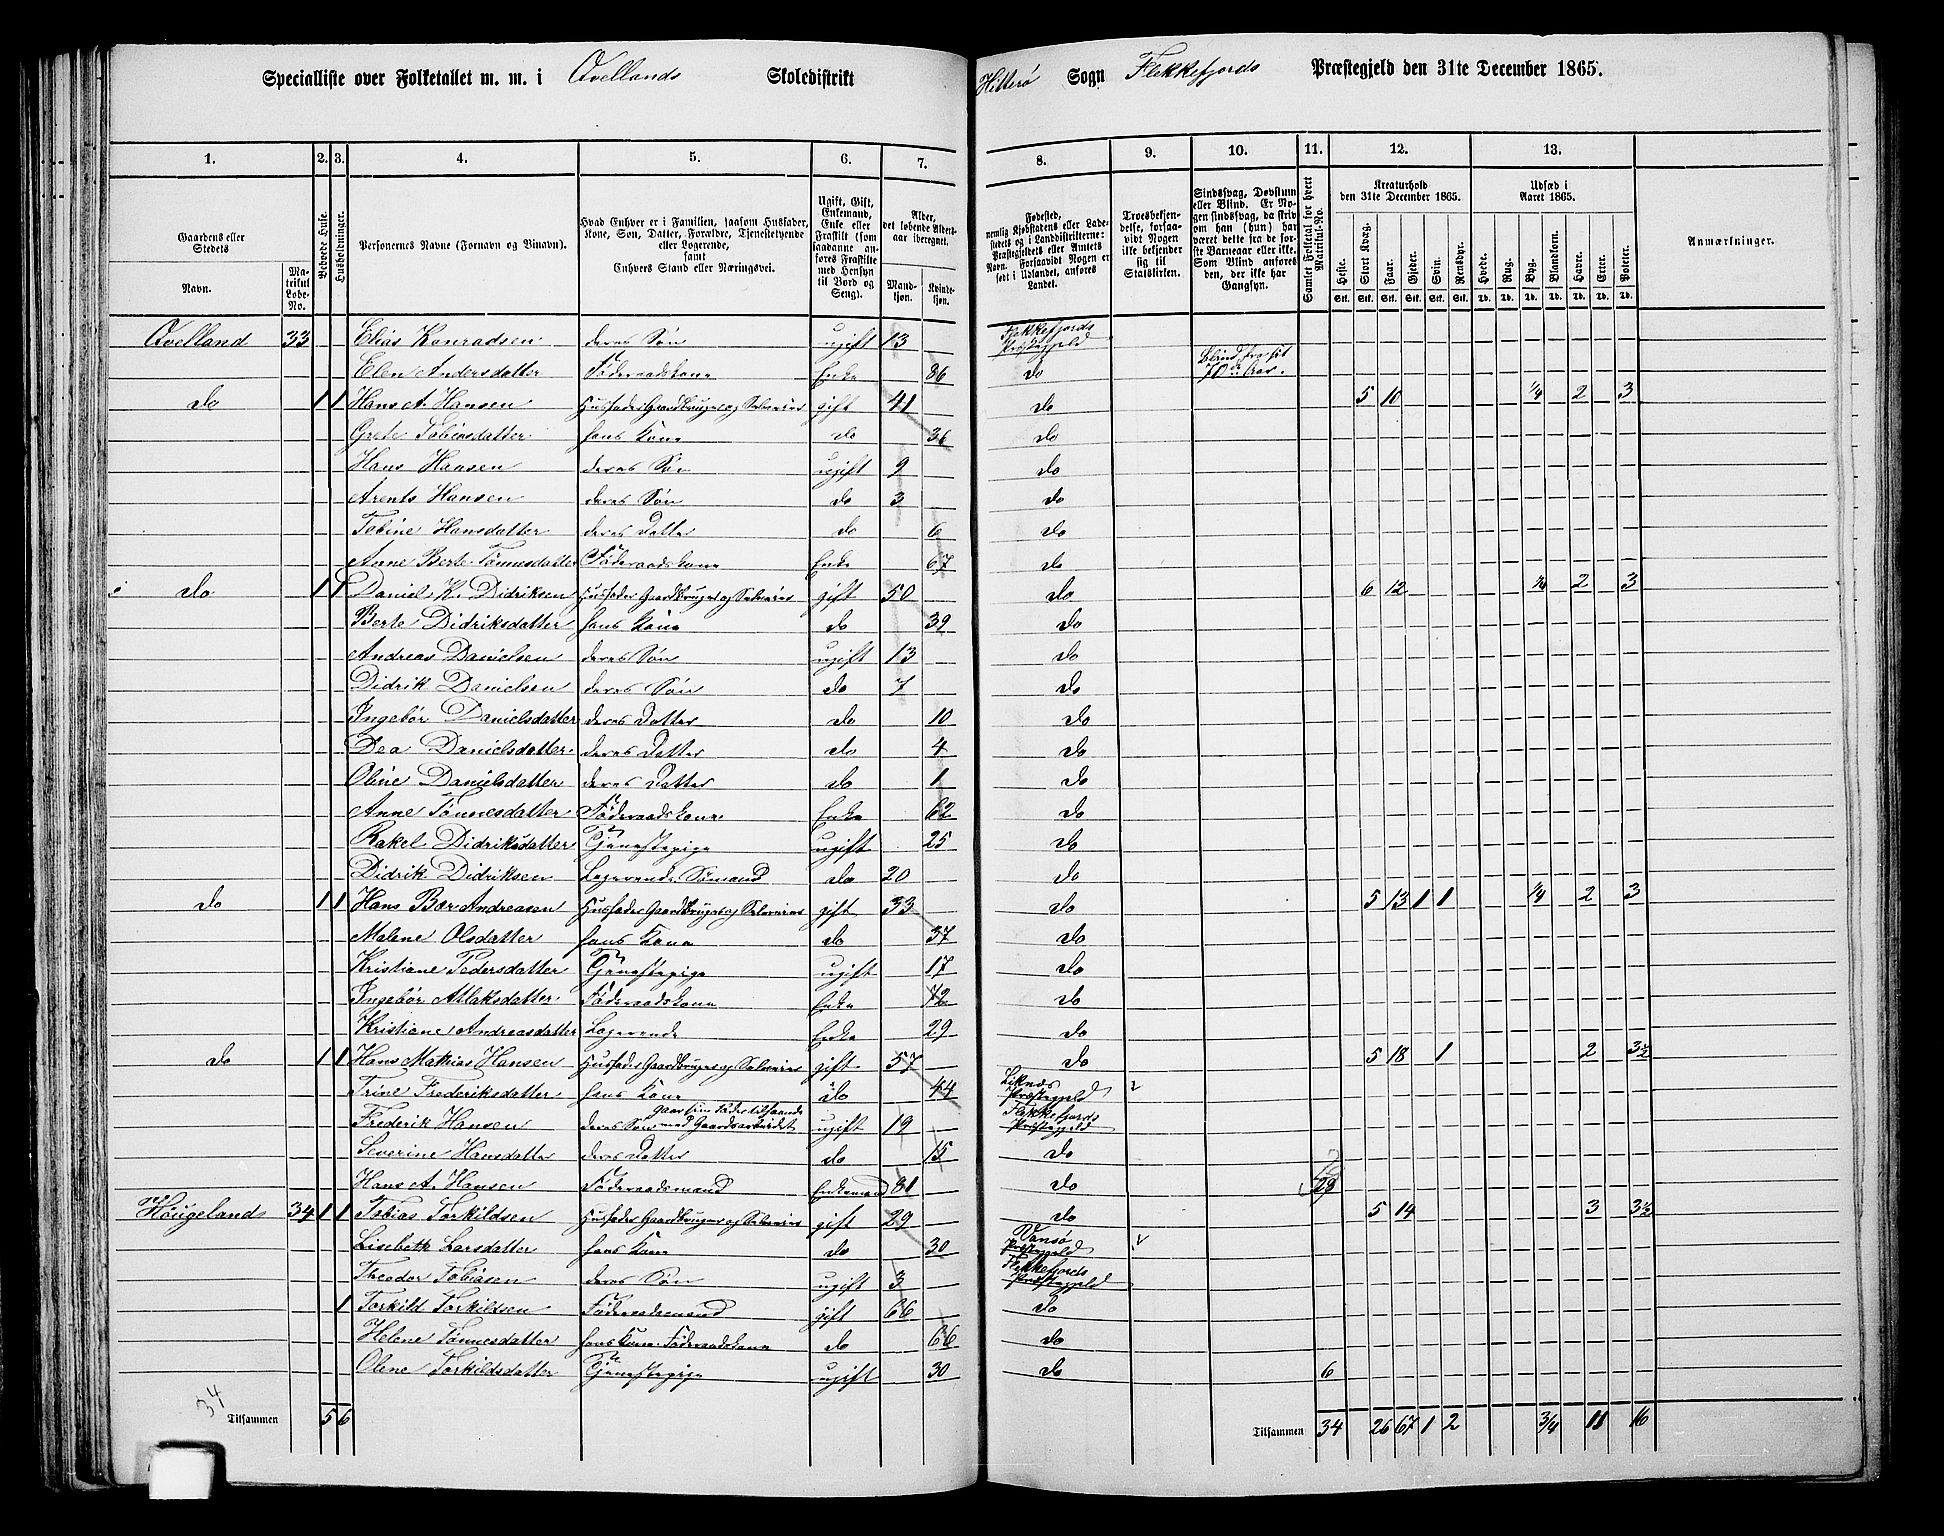 Specialliste over Folketallet m. m. i Ovellands Skoledistrikt Hitterø Sogn Flekkefjords Præstegjeld den 31te December 1865.
1. 2. 3. 4. 5. 6. 7. 8. 9. 10. 11. 12. 13.
Gaardens eller Stedets
Navn.
Matrikul Løbe-No.
Beboede Huse.
Husholdninger.
Personernes Navne (Fornavn og Binavn).
Hvad Enhver er i Familien, saasom Husfader, Kone, Søn, Datter, Forældre, Tjenestetyende eller Logerende, samt Enhvers Stand eller Næringsvei.
Ugift, Gift, Enkemand, Enke eller Fraskilt (som saadanne anføres Fraskilte med Hensyn til Bord og Seng).
Alder, det løbende Alders-aar iberegnet.
Mandkjøn. Kvindekjøn.
Fødested, nemlig Kjøbstadens eller Ladestedets og i Landdistrikterne: Præstegjeldets eller Amtets Navn. Forsaavidt Nogen er født i Udlandet, anføres Landet.
Troesbekjendelse, forsaavidt Nogen ikke bekjender sig til Statskirken.
Sindssvag, Døvstum eller Blind. Er Nogen sindssvag, da skrives om han (hun) har været dette fra de første Barneaar eller ikke. Som Blind anføres den, der ikke har Gangsyn.
Samlet Folketal for hvert Matrikul-No.
Kreaturhold den 31te December 1865.
Heste. Stort Kvæg. Faar. Gjeder. Svin. Rensdyr.
Udsæd i Aaret 1865.
Hvede. Rug. Byg. Blandkorn. Havre. Erter. Poteter.
Anmærkninger.
Ovelland 33 Elias Konradsen deres Søn ugift 13 Flekkefjords Præstegjeld
Elen Andersdatter Føderaadskone Enke 86 do Blind fra sit 70de Aar.
do 1 1 Hans A. Hansen Husfader Gaardbruger og Selveier gift 41 do 5 10 1/4 2 3
Grete Tobiasdatter hans Kone do 36 do
Hans Hansen deres Søn ugift 9 do
Arents Hansen deres Søn do 3 do
Tobine Hansdatter deres Datter do 6 do
Anne Berte Tønnesdatter Føderaadskone Enke 67 do
do 1 1 Daniel K. Didriksen Husfader Gaardbruger og Selveier gift 50 do 6 12 1/4 2 3
Berte Didriksdatter hans Kone do 39 do
Andreas Danielsen deres Søn ugift 13 do
Didrik Danielsen deres Søn do 7 do
Ingebør Danielsdatter deres Datter do 10 do
Dea Danielsdatter deres Datter do 4 do
Oline Danielsdatter deres Datter do 1 do
Anne Tønnesdatter Føderaadskone Enke 62 do
Rakel Didriksdatter Tjenestepige ugift 25 do
Didrik Didriksen Logerende Sømand do 20 do
do 1 1 Hans Bær Andreasen Husfader Gaardbruger og Selveier gift 33 do 5 13 1 1 1/4 2 3
Malene Olsdatter hans Kone do 37 do
Kristiane Pedersdatter Tjenestepige ugift 17 do
Ingebør Atlaksdatter Føderaadskone Enke 72 do
Kristiane Andreasdatter Logerende Enke 29 do
do 1 1 Hans Mathias Hansen Husfader Gaardbruger og Selveier gift 57 do 5 18 1 2 3½
Trine Frederiksdatter hans Kone do 44 Liknes Præstegjeld
Frederik Hansen deres Søn gaar sin Fader tilhaande med Gaardsarbeidet ugift 19 Flekkefjords Præstegjeld
Severine Hansdatter deres Datter do 15 do
Hans A. Hansen Føderaadsmand Enkemand 81 do
Høugeland 34 1 1 Tobias Torkildsen Husfader Gaardbruger og Selveier gift 29 do 5 14 3 3½
Lisebeth Larsdatter hans Kone do 30 Vansø Præstegjeld
Theodor Tobiasen deres Søn ugift 3 Flekkefjords Præstegjeld
1 Torkild Torkildsen Føderaadsmand gift 66 do
Helene Tønnesdatter hans Kone Føderaadskone do 66 do
Olene Torkildsdatter Tjenestepige ugift 30 do 6
34
Tilsammen 5 6
Tilsammen 34 26 67 1 2 3/4 11 16